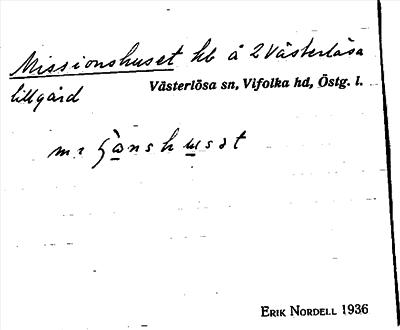 Missionshuset hb å 2 Västerlösa
lillgård
Västerlösa sn, Vifolka hd, Östg. l.
ERIK NORDELL 1936